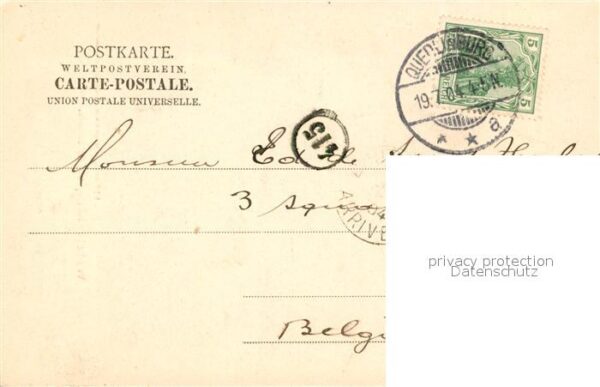 POSTKARTE.
WELTPOSTVEREIN.
CARTE-POSTALE.
UNION POSTALE UNIVERSELLE.
QUEDLINBURG
19.7.04.4-5N.
* * a
5
5
415
Monsieur Ed
3 Squ
ARRIVE
Belgi
privacy protection
Datenschutz